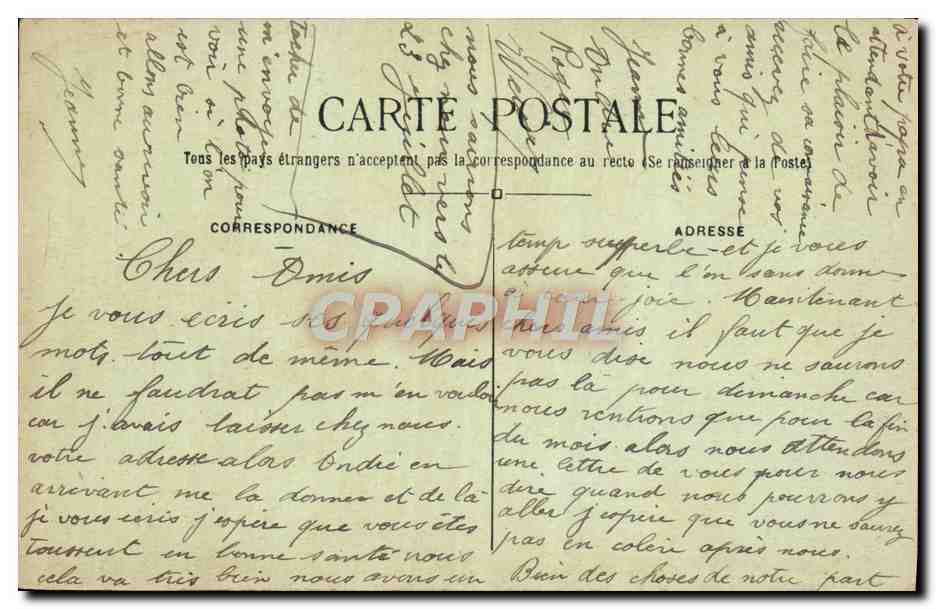 CARTE POSTALE
Tous les pays étrangers n'acceptent pas la correspondance au recto (Se renseigner à la Poste)
CORRESPONDANCE
ADRESSE
Chers Amis
Je vous ecris ses quelques
mots tout de même. Mais
il ne faudrat pas m'en vouloi
car j'avais laisser chez nous.
votre adresse alors André en
arrivant me la donner et de là
je vous ecris j'espère que vous êtes
toussent en bonne santé nous
cela va très bien nous avons un
temp superbe et je vous
assure que l'on sans donne
joie. Maintenant
chers amis il faut que je
vous dise nous ne saurons
pas là pour dimanche car
nous rentrons que pour la fin
du mois alors nous attendons
une lettre de vous pour nous
dire quand nous pourrons y
aller j'espère que vous ne saurez
pas en colère après nous.
Bien des choses de notre part
à votre papa en
attendant l'avoir
le plaisir de
faire sa connaissance
recevez de vos
amis qui pense
à vous leurs
bonnes amitiés
Jeanne
André
Roger
nous sairons
chez nous vers le
23 juillet
tache de
m'envoyer
une photo pour
voir si l'on
est bien
allons au revoir
et bonne santé
Jeanne
CPAPHIL